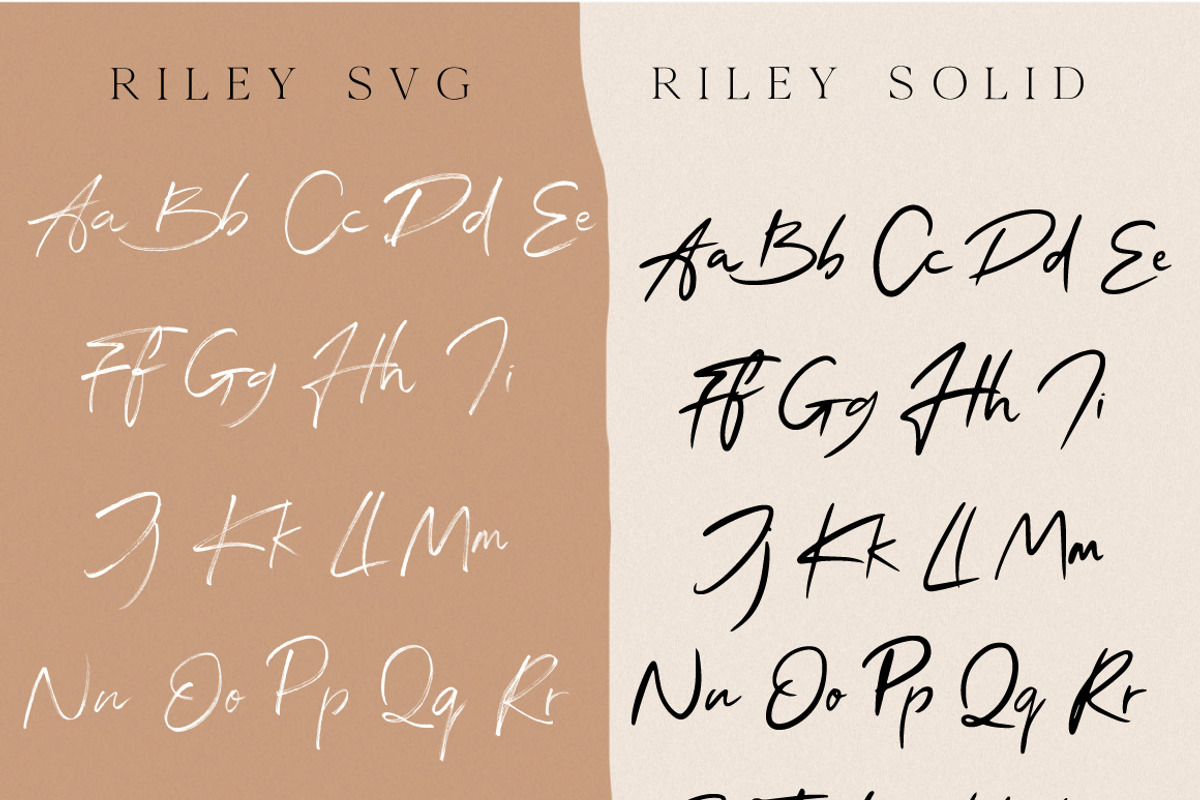 RILEY SVG
Aa Bb Cc Dd Ee
Ff Gg Hh Ii
Jj Kk Ll Mm
Nn Oo Pp Qq Rr
RILEY SOLID
Aa Bb Cc Dd Ee
Ff Gg Hh Ii
Jj Kk Ll Mm
Nn Oo Pp Qq Rr